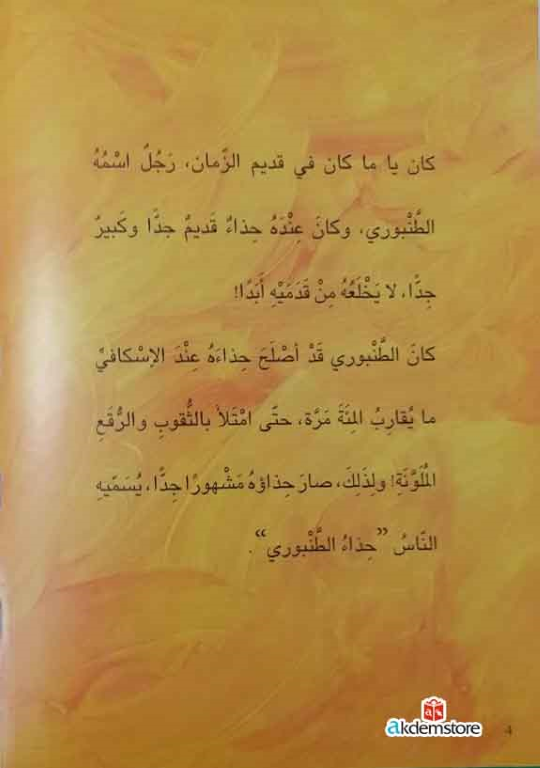 كان يا ما كان في قديم الزّمان، رَجُلٌ اسْمُهُ
الطَّنْبوري، وكانَ عِنْدَهُ حِذاءٌ قَديمٌ جدًّا وكَبيرٌ
جِدًّا، لا يَخْلَعُهُ مِنْ قَدَمَيْهِ أَبَدًا!
كانَ الطَّنْبوري قَدْ أصْلَحَ حِذاءَهُ عِنْدَ الإسْكافيِّ
ما يُقارِبُ المِئَةَ مَرَّة، حتّى امْتَلأَ بالثُّقوبِ والرُّقَعِ
المُلَوَّنَةِ! ولِذَلِكَ، صارَ حِذاؤهُ مَشْهورًا جِدًّا، يُسَمّيهِ
النّاسُ ”حِذاءُ الطَّنْبوري“.
akdemstore
4